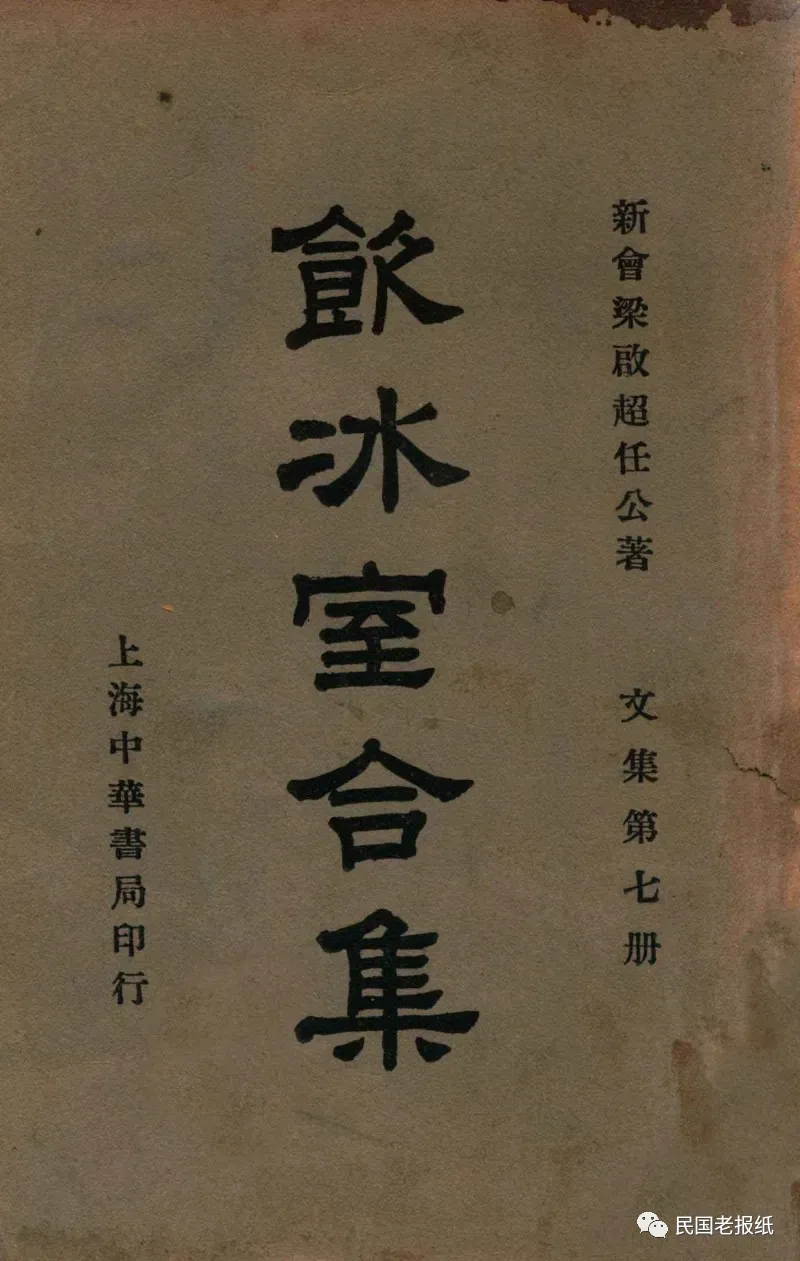 新會梁啟超任公著　文集第七册
飲冰室合集
上海中華書局印行
民国老报纸